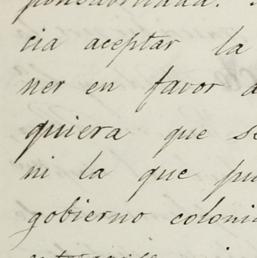 cia aceptar la
ner en favor
quiera que se
ni la que pu
gobierno coloni